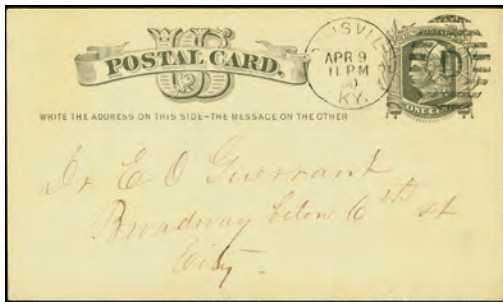 US
POSTAL CARD.
WRITE THE ADDRESS ON THIS SIDE-THE MESSAGE ON THE OTHER
APR 9
11 PM
KY.
ONE CENT
Dr E O Guerrant
Broadway 6th st
City